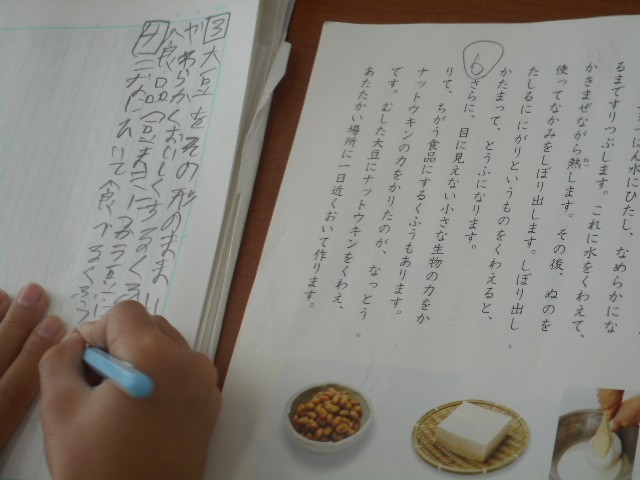 ばん水にひたし、なめらかにな
るまですりつぶします。これに水をくわえて、
かきまぜながら熱します。その後、ぬのを
使ってなかみをしぼり出します。しぼり出し
たしるににがりというものをくわえると、
かたまって、とうふになります。
6
さらに、目に見えない小さな生物の力をか
りて、ちがう食品にするくふうもあります。
ナットウキンの力をかりたのが、なっとう
です。むした大豆にナットウキンをくわえ、
あたたかい場所に一日近くおいて作ります。
3 大豆をその形のまま
やわらかくおいしくするくふ
食品(豆まきに豆
4 こなにひいて食べるくふう